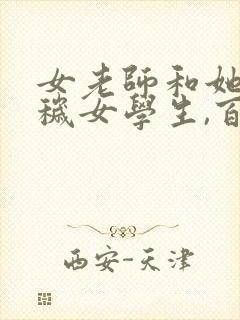 女老師和她
穢女學生,百
西安-天津